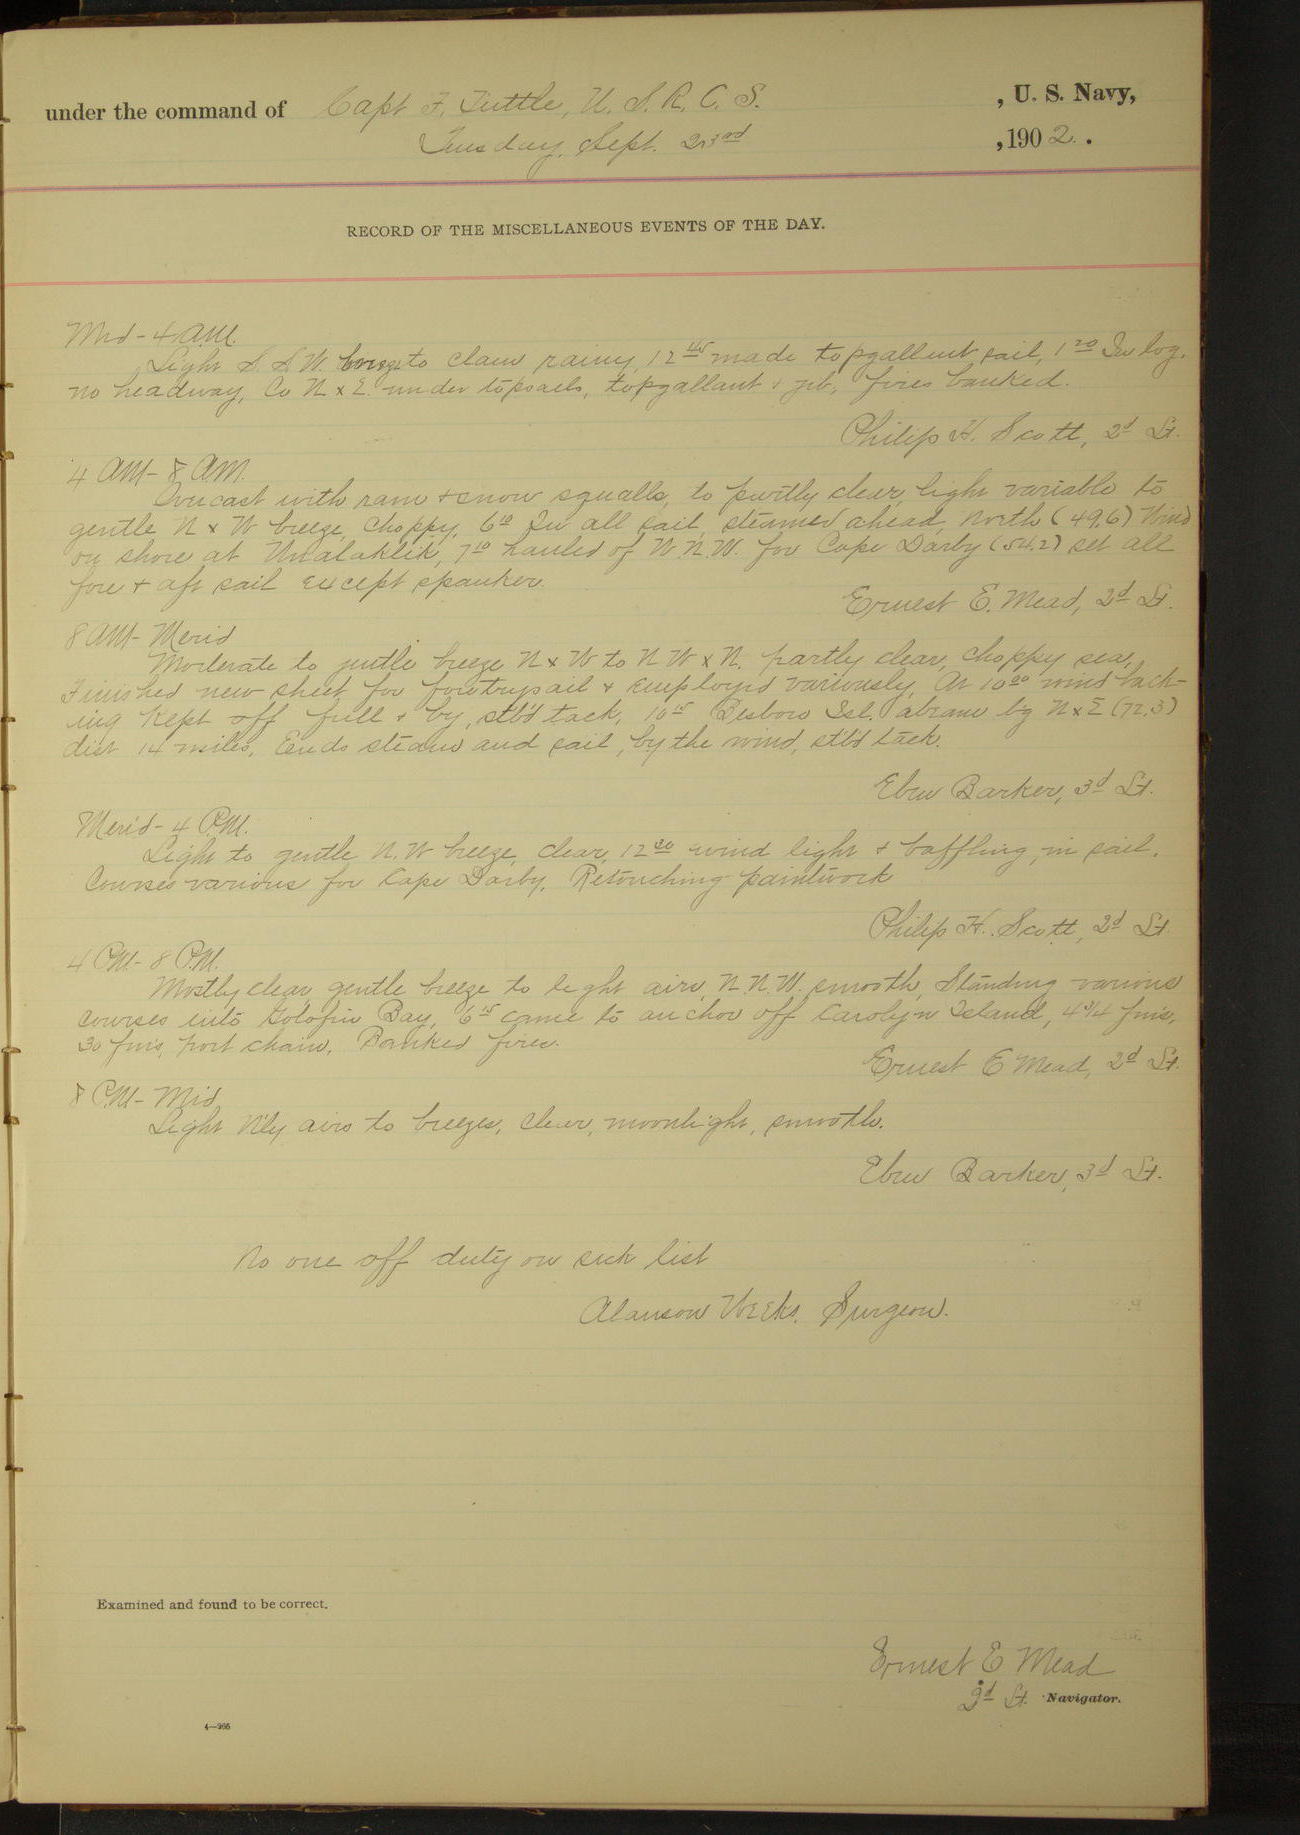 under the command of Capt F. Tuttle, U. S. R. C. S. , U. S. Navy,
Tuesday, Sept. 23rd , 1902.
RECORD OF THE MISCELLANEOUS EVENTS OF THE DAY.
Mid - 4 AM.
Light S. S. W. breeze to calm rainy, 12 45 made topgallant sail, 1 20 In log.
no headway, Co N x E. under topsails, topgallant & jib, fires banked.
Philip H. Scott, 2d Lt.
4 AM - 8 AM.
Overcast with rain & snow squalls, to partly clear, light variable to
gentle N x W breeze, choppy. 6 10 In all sail, steamed ahead, North (49.6) Wind
on shore at Unalaklik, 7 10 hauled off W. N. W. for Cape Darby (54.2) set all
fore & aft sail except spanker.
Ernest E. Mead, 2d Lt.
8 AM - Merid
Moderate to gentle breeze N x W to N W x N. partly clear, choppy sea,
Finished new sheet for foretrysail & employed variously. At 10 00 wind back-
ing kept off full & by, stb'd tack, 10 15 Besboro Isl. abeam by N x E (72.3)
dist 14 miles, Ends steam and sail, by the wind, stb'd tack.
Eben Barker, 3d Lt.
Merid - 4 P.M.
Light to gentle N. W breeze, clear, 12 30 wind light & baffling, in sail.
Courses various for Cape Darby. Retouching paintwork
Philip H. Scott, 2d Lt
4 PM - 8 P.M.
Mostly clear, gentle breeze to light airs, N. N. W. smooth, Standing various
courses into Golofin Bay, 6 15 came to anchor off Carolyn Island, 4 3/4 fms,
30 fms, port chain. Banked fires.
Ernest E Mead, 2d Lt.
8 P.M - Mid
Light N'ly airs to breezes, clear, moonlight, smooth.
Eben Barker, 3d Lt.
No one off duty on sick list
Alanson Weeks. Surgeon.
Examined and found to be correct.
Ernest E Mead
2d Lt. Navigator.
4—966